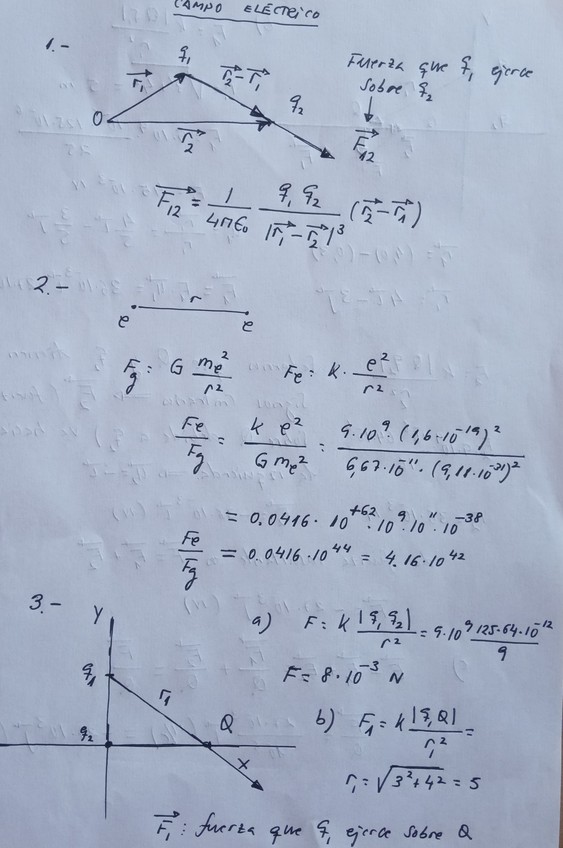 CAMPO ELÉCTRICO
1.-
q₁
r₁→
r₂→-r₁→
q₂
O
r₂→
Fuerza que q₁ ejerce
sobre q₂
↓
F₁₂→
F₁₂→ = 1/(4πϵ₀) q₁ q₂/|r₁→-r₂→|³ (r₂→-r₁→)
2.-
r
e e
Fg = G me²/r² Fe = K · e²/r²
Fe/Fg = K e²/(G me²) = 9·10⁹·(1,6·10⁻¹⁹)²/(6,67·10⁻¹¹·(9,11·10⁻³¹)²)
= 0.0416 · 10⁺⁶²·10⁹·10¹¹·10⁻³⁸
Fe/Fg = 0.0416·10⁴⁴ = 4.16·10⁴²
3.-
Y
q₁
r₁
q₂
Q
X
a) F = K |q₁q₂|/r² = 9·10⁹ 125·64·10⁻¹²/9
F = 8·10⁻³ N
b) F₁ = K |q₁Q|/r₁² =
r₁ = √(3²+4²) = 5
F₁→: fuerza que q₁ ejerce sobre Q